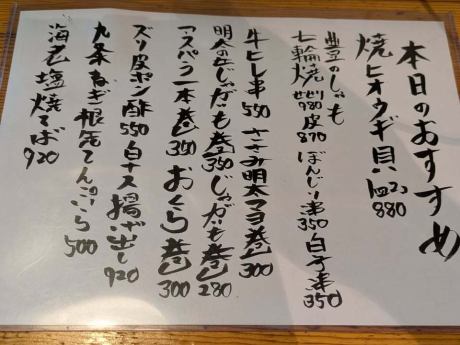 本日のおすすめ
焼ヒオウギ貝 880
豊のしゃも
七輪焼 せせり980 皮870 ぼんじり串350 白子串350
牛ヒレ串550 ささみ明太マヨ巻300
明太のせじゃがいも巻350 じゃがいも巻280
アスパラ一本巻350 おくら巻300
ズリ皮ポン酢550 白ナス揚げ出し920
九条ねぎ根天てんぷら500
海老塩焼そば920